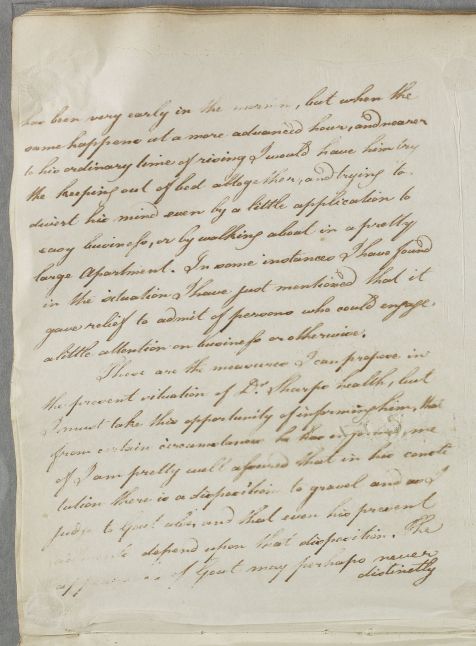 has been very early in the mornin, but when the
same happens at a more advanced hour, and nearer
to his ordinary time of rising I would have him try
the keeping out of bed altogether, and trying to
divert his mind even by a little application to
easy business, or by walking about in a pretty
large Apartment. In some instances I have found
in the situation I have just mentioned that it
gave relief to admit of persons who could engage
a little attention on business or otherwise.
These are the measures I can propose in
the present situation of Dr. Sharps health, but
I must take this opportunity of informing him, that
from certain circumstances he has informed me
of I am pretty well assured that in his consti
tution there is a disposition to gravel and as I
judge to Gout also, and that even his present
depend upon that disposition. The
of Gout may perhaps never
distinctly